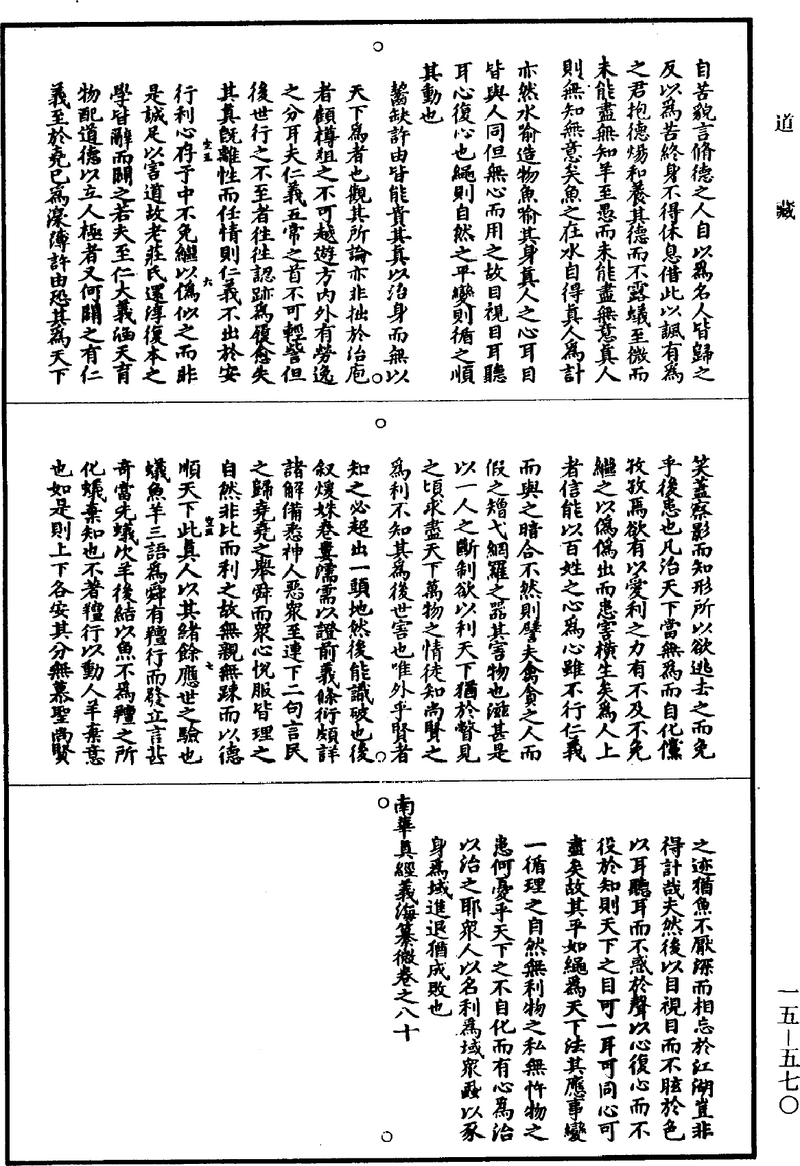 道藏
自苦貌言脩德之人自以為名人皆歸之
反以為苦終身不得休息借此以諷有為
之君抱德煬和養其德而不露蟻至微而
未能盡無知羊至愚而未能盡無意真人
則無知無意矣魚之在水自得真人為計
亦然水喻造物魚喻其身真人之心耳目
皆與人同但無心而用之故目視目耳聽
耳心復心也繩則自然之平變則循之順
其動也
齧缺許由皆能貴其真以治身而無以
天下為者也觀其所論亦非拙於治庖
者顧樽俎之不可越遊方內外有勞逸
之分耳夫仁義五常之首不可輕訾但
後世行之不至者徃徃認跡為履愈失
其真既離性而任情則仁義不出於安
行利心存乎中不免繼以偽似之而非
是誠足以害道故老莊氏還淳復本之
學皆辭而闢之若夫至仁大義涵天育
物配道德以立人極者又何闢之有仁
義至於堯已為澆薄許由恐其為天下
笑蓋察影而知形所以欲逃去之而免
乎後患也凡治天下當無為而自化儻
孜孜焉欲有以愛利之力有不及不免
繼之以偽偽出而患害橫生矣為人上
者信能以百姓之心為心雖不行仁義
而與之暗合不然則譬夫禽貪之人而
假之矰弋網羅之器其害物也滋甚是
以一人之斷制欲以利天下猶於瞥見
之頃求盡天下萬物之情徒知尚賢之
為利不知其為後世害也唯外乎賢者
知之必超出一頭地然後能識破也後
叙煖姝卷婁濡需以證前義條衍頗詳
諸解備悉神人惡衆至連下二句言民
之歸堯堯之舉舜而衆心悅服皆理之
自然非比而利之故無親無踈而以德
順天下此真人以其緒餘應世之驗也
蟻魚羊三語為舜有羶行而發立言甚
奇當先蟻次羊後結以魚不為羶之所
化蟻棄知也不著羶行以動人羊棄意
也如是則上下各安其分無慕聖尚賢
之迹猶魚不厭深而相忘於江湖豈非
得計哉夫然後以目視目而不眩於色
以耳聽耳而不惑於聲以心復心而不
役於知則天下之目可一耳可同心可
盡矣故其平如繩為天下法其應事變
一循理之自然無利物之私無忤物之
患何憂乎天下之不自化而有心為治
以治之耶衆人以名利為域衆蝨以豕
身為域進退猶成敗也
南華真經義海纂微卷之八十
一五—五七〇